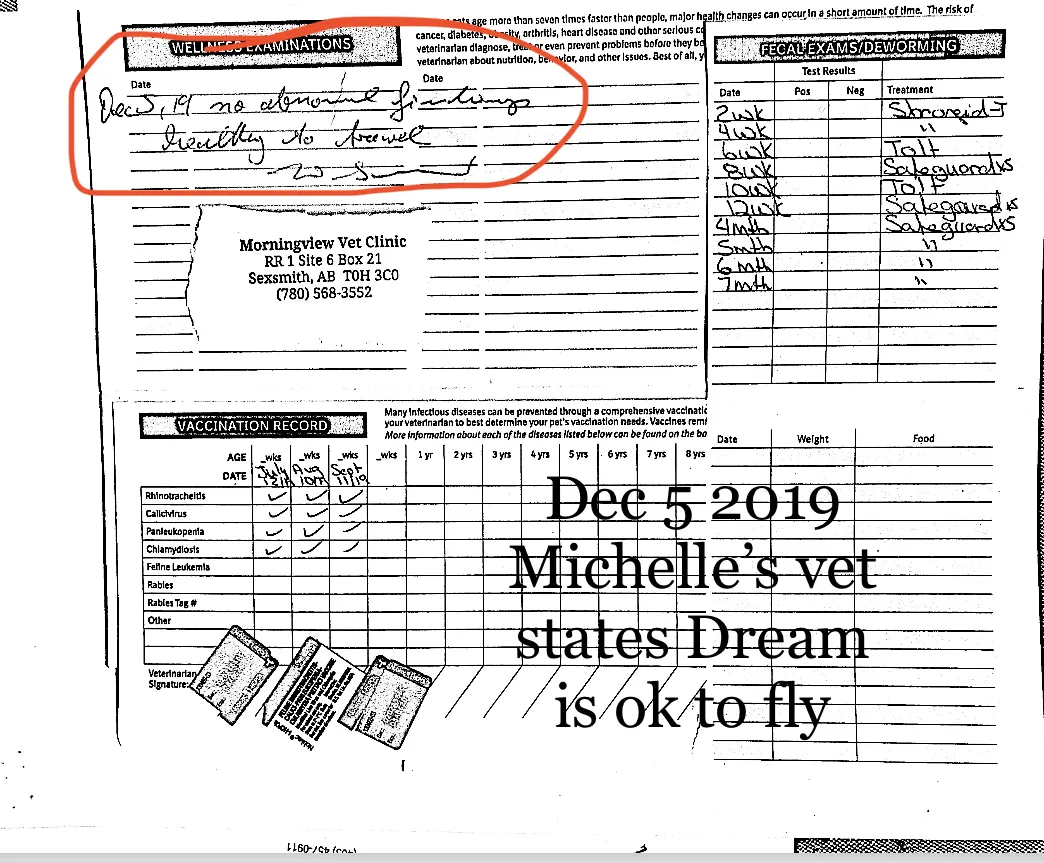 WELLNESS EXAMINATIONS
Date
Date
Dec 5, 19 no abnormal findings
healthy to travel
age more than seven times faster than people, major health changes can occur in a short amount of time. The risk of
cancer, diabetes, obesity, arthritis, heart disease and other serious
veterinarian diagnose, treat or even prevent problems before they
veterinarian about nutrition, behavior, and other issues. Best of all,
FECAL EXAMS/DEWORMING
Test Results
Date Pos Neg Treatment
2wk Strongid-T
4wk "
6wk Tolt
8wk Safeguard x5
10wk Tolt
12wk Safeguard x5
4mth Safeguard x5
5mth "
6mth "
7mth "
Morningview Vet Clinic
RR 1 Site 6 Box 21
Sexsmith, AB T0H 3C0
(780) 568-3552
VACCINATION RECORD
Many infectious diseases can be prevented through a comprehensive
your veterinarian to best determine your pet's vaccination needs. Vaccines
More information about each of the diseases listed below can be found on the
AGE _wks _wks _wks _wks 1 yr 2 yrs 3 yrs 4 yrs 5 yrs 6 yrs 7 yrs 8 yrs
DATE July Aug Sept 11/19
Rhinotracheitis
Calicivirus
Panleukopenia
Chlamydiosis
Feline Leukemia
Rabies
Rabies Tag #
Other
Veterinarian
Signature:
Date Weight Food
Dec 5 2019
Michelle's vet
states Dream
is ok to fly